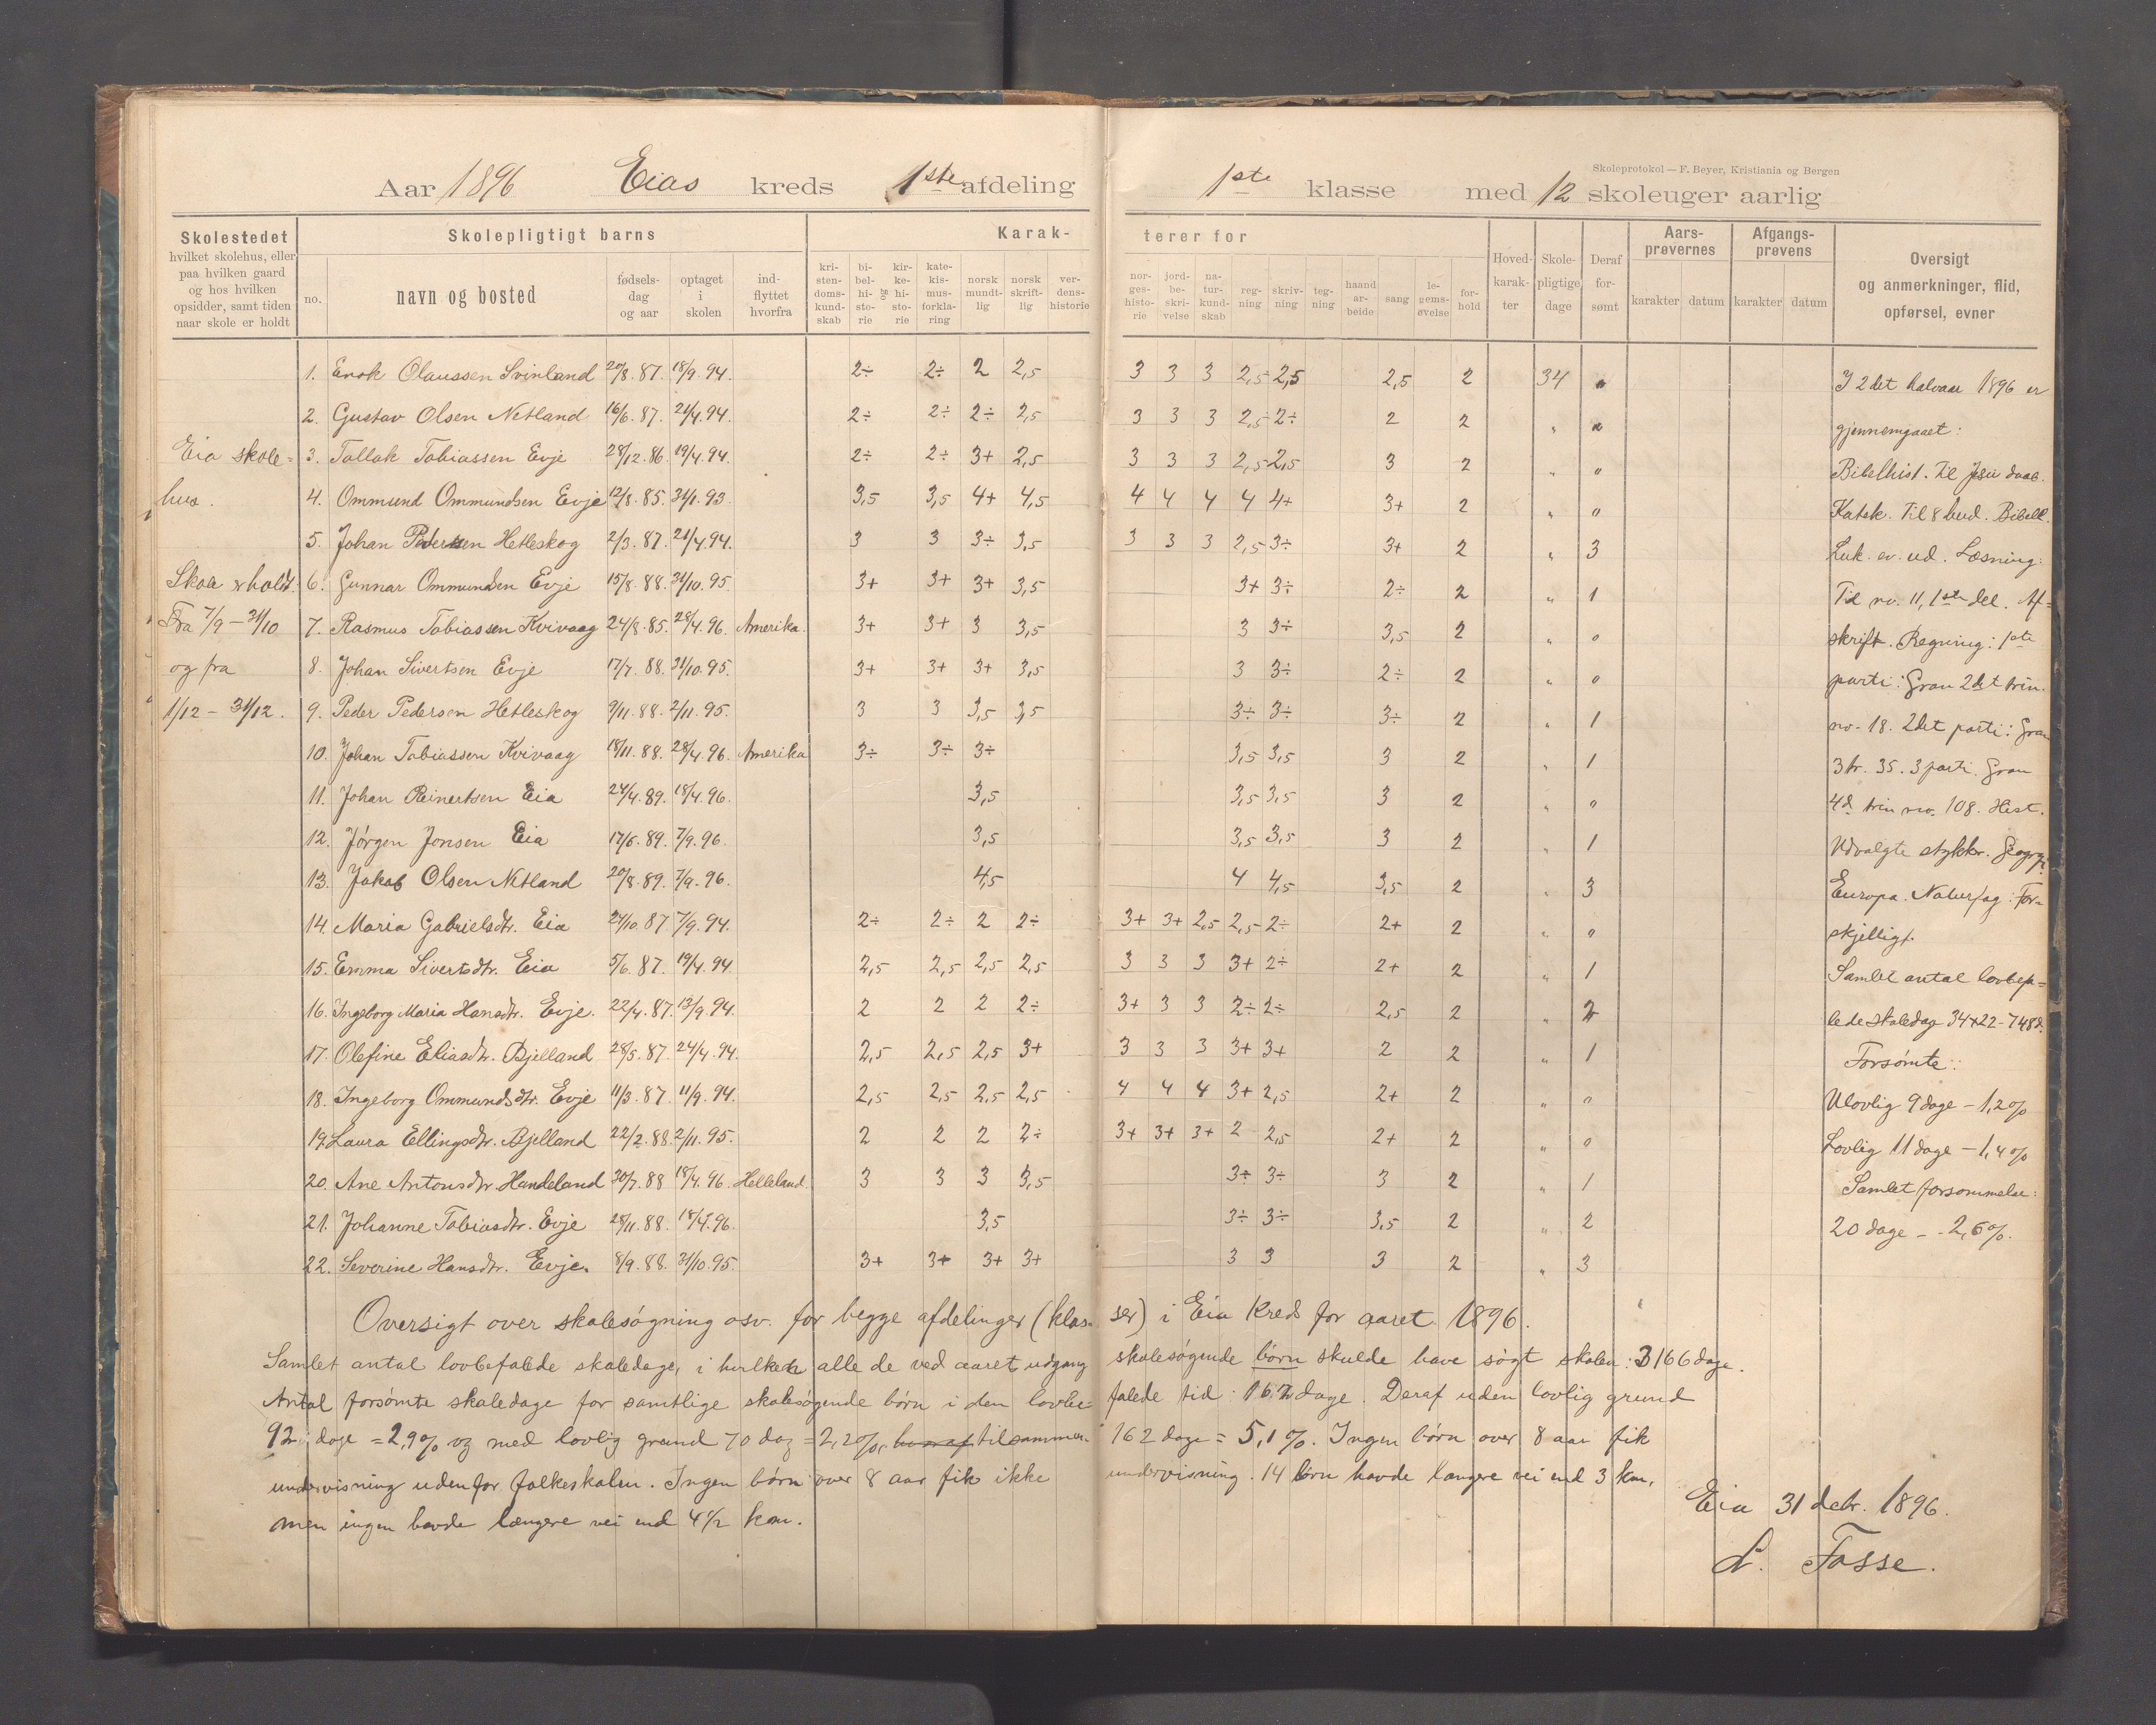 Skoleprotokol — F. Beyer, Kristiania og Bergen
Aar 1896 Eias kreds 1ste afdeling 1ste klasse med 12 skoleuger aarlig
Skolestedet
hvilket skolehus, eller paa hvilken gaard og hos hvilken opsidder, samt tiden naar skole er holdt
Skolepligtigt barns
no. navn og bosted fødselsdag og aar optaget i skolen indflyttet hvorfra
Karakterer for
kristendomskundskab bibelhistorie og kirkehistorie katekismusforklaring norsk mundtlig norsk skriftlig verdenshistorie norgeshistorie jordbeskrivelse naturkundskab regning skrivning tegning haandarbeide sang legemsøvelse forhold
Hovedkarakter Skolepligtige dage Deraf forsømt
Aarsprøvernes karakter datum Afgangsprøvens karakter datum
Oversigt og anmerkninger, flid, opførsel, evner
1. Enok Olaussen Svinland 20/8.87. 18/9.94. 2÷ 2÷ 2 2,5 3 3 3 2,5 2,5 2,5 2 34 "
2. Gustav Olsen Netland 16/6.87. 21/4.94. 2÷ 2÷ 2÷ 2,5 3 3 3 2,5 2÷ 2 2 " "
3. Tallak Tobiassen Evje 28/12.86. 19/4.94. 2÷ 2÷ 3+ 2,5 3 3 3 2,5 2,5 3 2 " "
4. Ommund Ommundsen Evje 12/8.85. 31/1.93. 3,5 3,5 4+ 4,5 4 4 4 4 4+ 3+ 2 " "
5. Johan Pedersen Hetleskog 2/3.87. 21/4.94. 3 3 3÷ 3,5 3 3 3 2,5 3÷ 3+ 2 " 3
6. Gunnar Ommundsen Evje 15/8.88. 31/10.95. 3+ 3+ 3+ 3,5 3+ 3÷ 2÷ 2 " 1
7. Rasmus Tobiassen Kvivaag 24/8.85. 28/4.96. Amerika. 3+ 3+ 3 3,5 3 3÷ 3,5 2 " "
8. Johan Sivertsen Evje 17/7.88. 31/10.95. 3+ 3+ 3+ 3,5 3 3÷ 2÷ 2 " "
9. Peder Pedersen Hetleskog 9/11.88. 2/11.95. 3 3 3,5 3,5 3÷ 3÷ 3÷ 2 " 1
10. Johan Tobiassen Kvivaag 18/11.88. 28/4.96. Amerika 3÷ 3÷ 3÷ 3,5 3,5 3 2 " 1
11. Johan Reinertsen Eia 24/4.89. 18/4.96. 3,5 3,5 3,5 3 2 " "
12. Jørgen Jonsen Eia 17/6.89. 7/9.96. 3,5 3,5 3,5 3 2 " 1
13. Jakob Olsen Netland 20/8.89. 7/9.96. 4,5 4 4,5 3,5 2 " 3
14. Maria Gabrielsdtr. Eia 24/10.87. 7/9.94. 2÷ 2÷ 2 2÷ 3+ 3+ 2,5 2,5 2÷ 2+ 2 " "
15. Emma Sivertsdtr. Eia 5/6.87. 19/4.94 2,5 2,5 2,5 2,5 3 3 3 3+ 2÷ 2+ 2 " 1
16. Ingeborg Maria Hansdtr. Evje. 22/4.87. 13/9.94. 2 2 2 2÷ 3+ 3 3 2÷ 2÷ 2,5 2 " 2
17. Olefine Eliasdtr. Bjelland 28/5.87. 24/4.94. 2,5 2,5 2,5 3+ 3 3 3 3+ 3+ 2 2 " 1
18. Ingeborg Ommundsdtr. Evje 11/3.87. 11/9.94. 2,5 2,5 2,5 2,5 4 4 4 3+ 2,5 2+ 2 " "
19. Laura Ellingsdtr. Bjelland 22/2.88. 2/11.95. 2 2 2 2÷ 3+ 3+ 3+ 2 2,5 2+ 2 " "
20. Ane Antonsdtr Handeland 30/7.88 18/4.96. Helleland. 3 3 3 3,5 3÷ 3÷ 3 2 " 1
21. Johanne Tobiasdtr. Evje 28/11.88. 18/4.96. 3,5 3÷ 3÷ 3,5 2 " 2
22. Severine Hansdtr. Evje. 8/9.88. 31/10.95. 3+ 3+ 3+ 3+ 3 3 3 2 " 3
Eia skole=
hus.
Skole er holdt:
Fra 7/9 – 31/10
og fra
1/12 – 31/12.
I 2det halvaar 1896 er
gjennemgaaet:
Bibelhist. til Jesu daab.
Katek. Til 8 bud. Bibell.
Luk. ev. ud. Læsning:
Til no. 11, 1ste del. Af=
skrift. Regning: 1ste
parti: Gran 2det trin.
no. 18. 2det parti: Gran
3 tr. 35. 3 parti Gran
4d trin no. 108. Hist.
Udvalgte stykker. Geogr.
Europa. Naturfag: For=
skjelligt.
Samlet antal lovbefa=
lede skoledag 34×22 - 748 d.
Forsømte:
Ulovlig 9 dage – 1,2%
Lovlig 11 dage – 1,4%
Samlet forsømmelse:
20 dage – 2,6%.
Oversigt over skolesøgning osv. for begge afdelinger (klas=ser) i Eia Kreds for aaret 1896.
Samlet antal lovbefalede skoledage, i hvilke alle de ved aaret udgang skolesøgende børn skulde have søgt skolen: 3166 dage.
Antal forsømte skoledage for samtlige skolesøgende børn i den lovbe=falede tid: 162 dage. Deraf uden lovlig grund
92 dage = 2,9% og med lovlig grund 70 dag = 2,2%, tilsammen 162 dage = 5,1%. Ingen børn over 8 aar fik
undervisning udenfor folkeskolen. Ingen børn over 8 aar fik ikke undervisning. 14 børn havde længere vei end 3 km,
men ingen havde længere vei end 4 1/2 km.
Eia 31 debr. 1896.
L. Fosse.